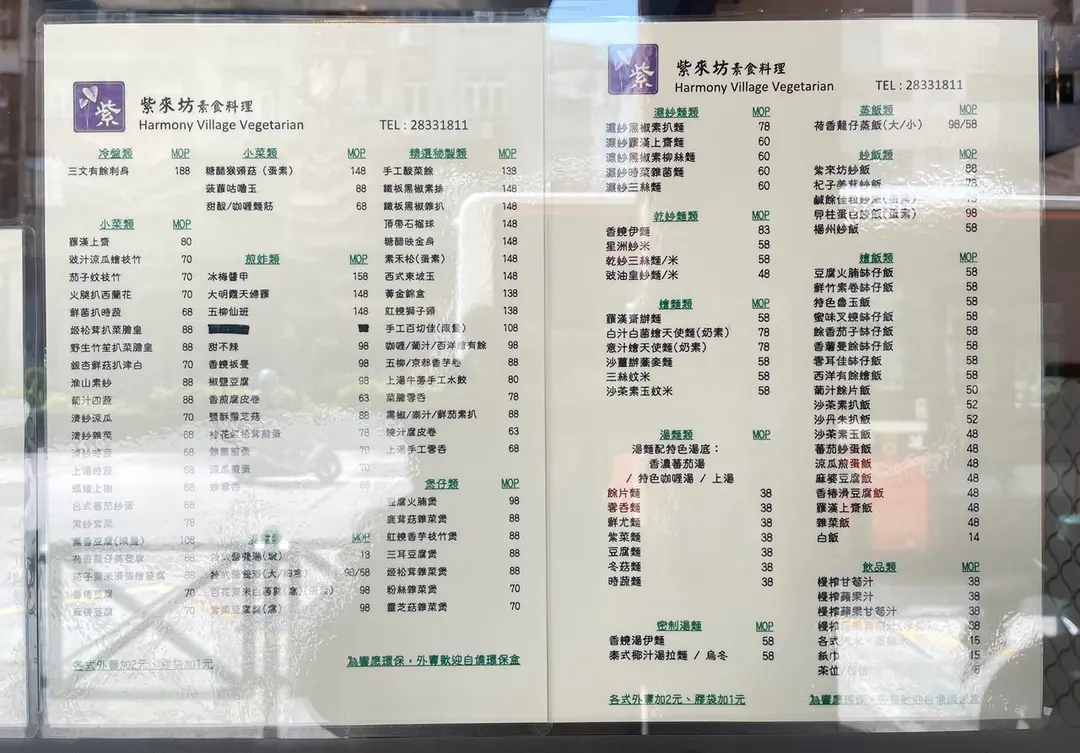 紫
紫來坊素食料理
Harmony Village Vegetarian
TEL : 28331811
冷盤類 MOP
三文有餘刺身 188
小菜類 MOP
羅漢上齋 80
豉汁涼瓜燴枝竹 70
茄子炆枝竹 70
火腿扒西蘭花 70
鮮菌扒時蔬 68
姬松茸扒菜膽皇 88
野生竹笙扒菜膽皇 88
銀杏鮮菇扒津白 70
淮山素炒 88
葡汁四蔬 88
清炒涼瓜 70
清炒雜菜 68
清炒時蔬 68
上湯時蔬 68
螞蟻上樹 68
台式蕃茄炒蛋 68
素炒紫菜 78
108
70
小菜類 MOP
糖醋猴頭菇 (蛋素) 148
菠蘿咕嚕玉 88
甜酸/咖喱麵筋 68
煎炸類 MOP
冰梅醬甲 158
大明霞天婦羅 148
五柳仙班 148
甜不辣 98
香饒板曼 98
椒鹽豆腐 98
香煎腐皮卷 63
鹽酥靈芝菇 88
桂花姬松茸煎蛋 78
雜菌煎蛋 70
涼瓜煎蛋 70
MOP
18
98/58
98
98
精選秘製類 MOP
手工酸菜餘 138
鐵板黑椒素排 148
鐵板黑椒雜扒 148
頂帶石榴球 148
糖醋映金身 148
素禾松(蛋素) 148
西式東坡玉 148
黃金錦盒 138
紅饒獅子頭 138
手工百切佳(限量) 108
咖喱/葡汁/百洋燴有餘 98
五柳/京都香芋卷 88
上湯牛蒡手工水餃 80
菜膽雲吞 78
黑椒/泰汁/鮮茄素扒 88
燒汁腐皮卷 63
上湯手工雲吞 68
煲仔類 MOP
豆腐火腩煲 98
鹿茸菇雜菜煲 88
紅饒香芋枝竹煲 88
三耳豆腐煲 88
姬松茸雜菜煲 88
粉絲雜菜煲 70
靈芝菇雜菜煲 70
各式外賣加2元、膠袋加1元
為響應環保，外賣歡迎自備環保盒
紫
紫來坊素食料理
Harmony Village Vegetarian
TEL : 28331811
濕炒麵類 MOP
濕炒黑椒素扒麵 78
濕炒羅漢上齋麵 60
濕炒黑椒素柳絲麵 60
濕炒時菜雜菌麵 60
濕炒三絲麵 60
乾炒麵類 MOP
香饒伊麵 83
星洲炒米 58
乾炒三絲麵/米 58
豉油皇炒麵/米 48
燴麵類 MOP
羅漢齋辦麵 58
白汁白菌燴天使麵(奶素) 78
意汁燴天使麵(奶素) 78
沙薑辦蕎麥麵 58
三絲炆米 58
沙茶素玉炆米 58
湯麵類 MOP
湯麵配特色湯底：
香濃蕃茄湯
/ 特色咖喱湯 / 上湯
餘片麵 38
雲吞麵 38
鮮尤麵 38
紫菜麵 38
豆腐麵 38
冬菇麵 38
時蔬麵 38
密制湯麵 MOP
香饒湯伊麵 58
泰式椰汁湯拉麵 / 烏冬 58
蒸飯類 MOP
荷香籠仔蒸飯(大/小) 98/58
炒飯類 MOP
紫來坊炒飯 88
杞子姜茸炒飯 78
卵柱蛋白炒飯(蛋素) 98
楊州炒飯 58
燴飯類 MOP
豆腐火腩缽仔飯 58
鮮竹素卷缽仔飯 58
特色魯玉飯 58
蜜味叉饒缽仔飯 58
餘香茄子缽仔飯 58
香蕈曼餘缽仔飯 58
雲耳佳缽仔飯 58
西洋有餘燴飯 58
葡汁餘片飯 50
沙茶素扒飯 52
沙丹朱扒飯 52
沙茶素玉飯 48
蕃茄炒蛋飯 48
涼瓜煎蛋飯 48
麻婆豆腐飯 48
香椿滑豆腐飯 48
羅漢上齋飯 48
雜菜飯 48
白飯 14
飲品類 MOP
椶榨甘荀汁 38
椶榨蘋果汁 38
椶榨蘋果甘荀汁 38
38
15
紙巾
各式外賣加2元、膠袋加1元
為響應環保，外賣歡迎自備環保盒